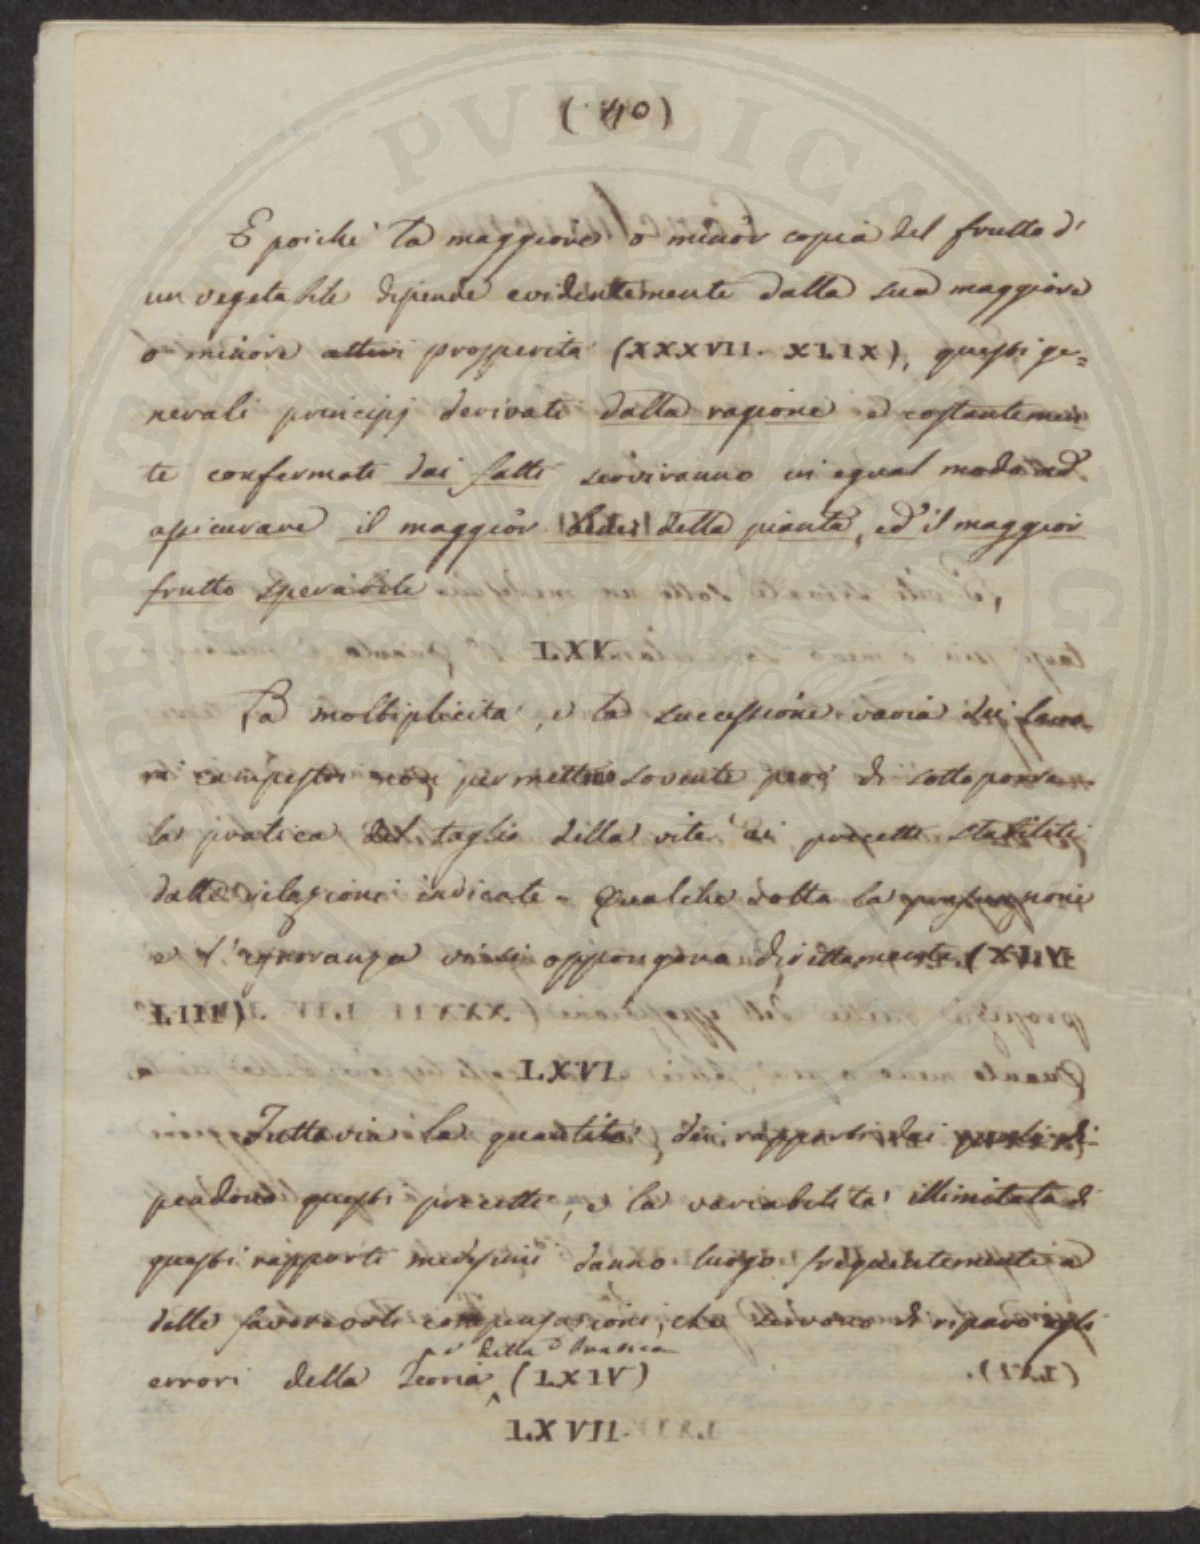 ( 40 )
E poichè la maggiore o minor copia del frutto d'
un vegetabile dipende evidentemente dalla sua maggiore
o minore prosperità (XXXVII. XLIX), questi ge=
nerali principj derivati dalla ragione e costantemen
te confermati dai fatti serviranno in egual modo ad
assicurare il maggior della pianta, ed il maggior
frutto sperabile
LXV
La moltiplicità, e la successione varia dei lavo
ri campestri non permettono sovente però di sottoporre
la pratica del taglio della vite ai precetti stabiliti
dalle relazioni indicate. Qualche volta la prevenzione
e l'ignoranza vi si oppongono direttamente (XVII.
LIII).
LXVI
Tuttavia la quantità dei rapporti dai quali di
pendono questi precetti, e la variabilità illimitata di
questi rapporti medesimi danno luogo frequentemente a
delle favorevoli compensazioni, che servono di riparo agli
e della Pratica
errori della Teoria (LXIV)
LXVII.